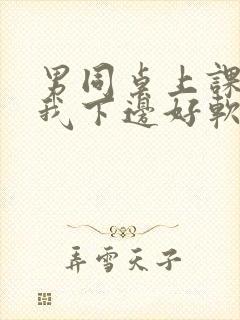 男同桌上課
我下邊好軟
弄雪天子